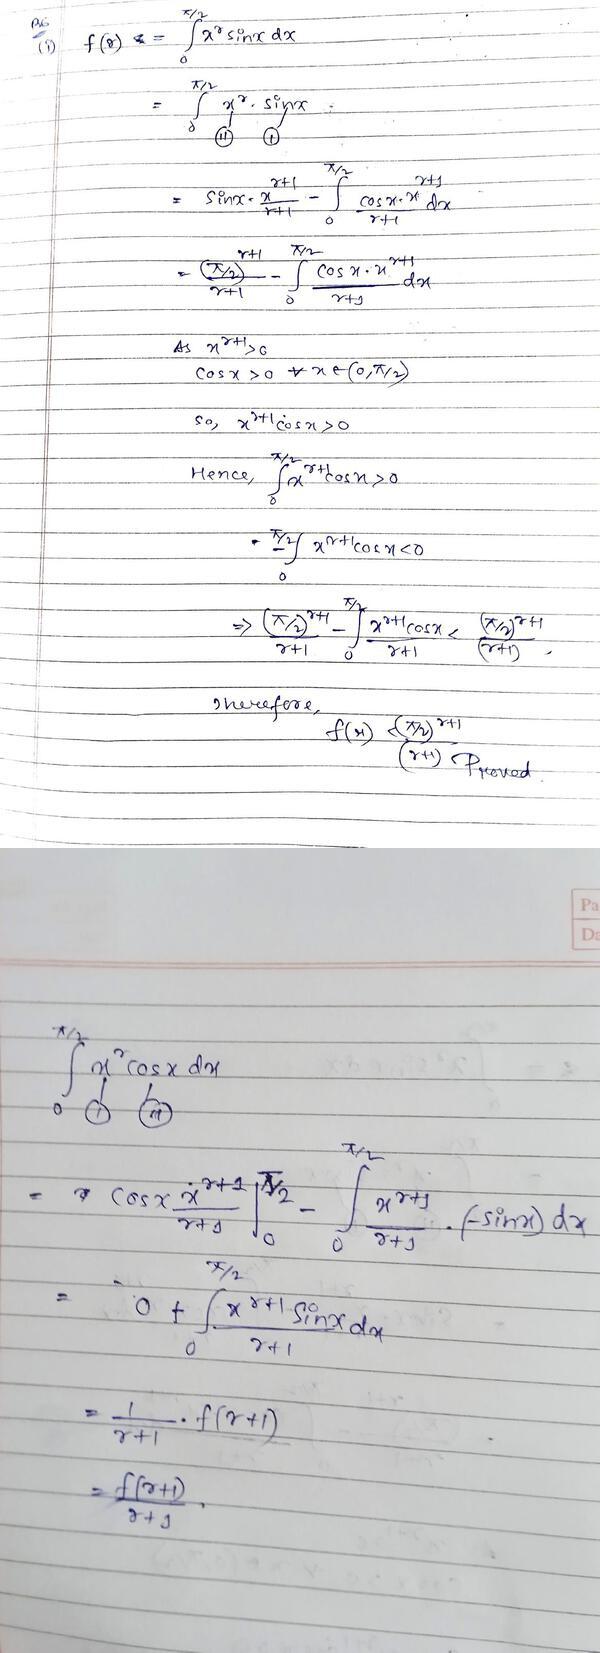 B6
(i) f(r) = ∫₀^{π/2} x^r sinx dx
= ∫₀^{π/2} x^r · sinx
(II) (I)
= sinx · x^{r+1}/(r+1) - ∫₀^{π/2} cosx · x^{r+1}/(r+1) dx
= (π/2)^{r+1}/(r+1) - ∫₀^{π/2} cosx · x^{r+1}/(r+1) dx
As x^{r+1}>0
cosx > 0 ∀ x ∈ (0, π/2)
so, x^{r+1} cosx > 0
Hence, ∫₀^{π/2} x^{r+1} cosx > 0
- ∫₀^{π/2} x^{r+1} cosx < 0
⇒ (π/2)^{r+1}/(r+1) - ∫₀^{π/2} x^{r+1} cosx/(r+1) < (π/2)^{r+1}/(r+1).
Therefore,
f(r) < (π/2)^{r+1}/(r+1) Proved
Pa
Da
∫₀^{π/2} x^r cosx dx
(I) (II)
= cosx x^{r+1}/(r+1) |₀^{π/2} - ∫₀^{π/2} x^{r+1}/(r+1) · (-sinx) dx
= 0 + ∫₀^{π/2} x^{r+1} sinx/(r+1) dx
= 1/(r+1) · f(r+1)
= f(r+1)/(r+1).